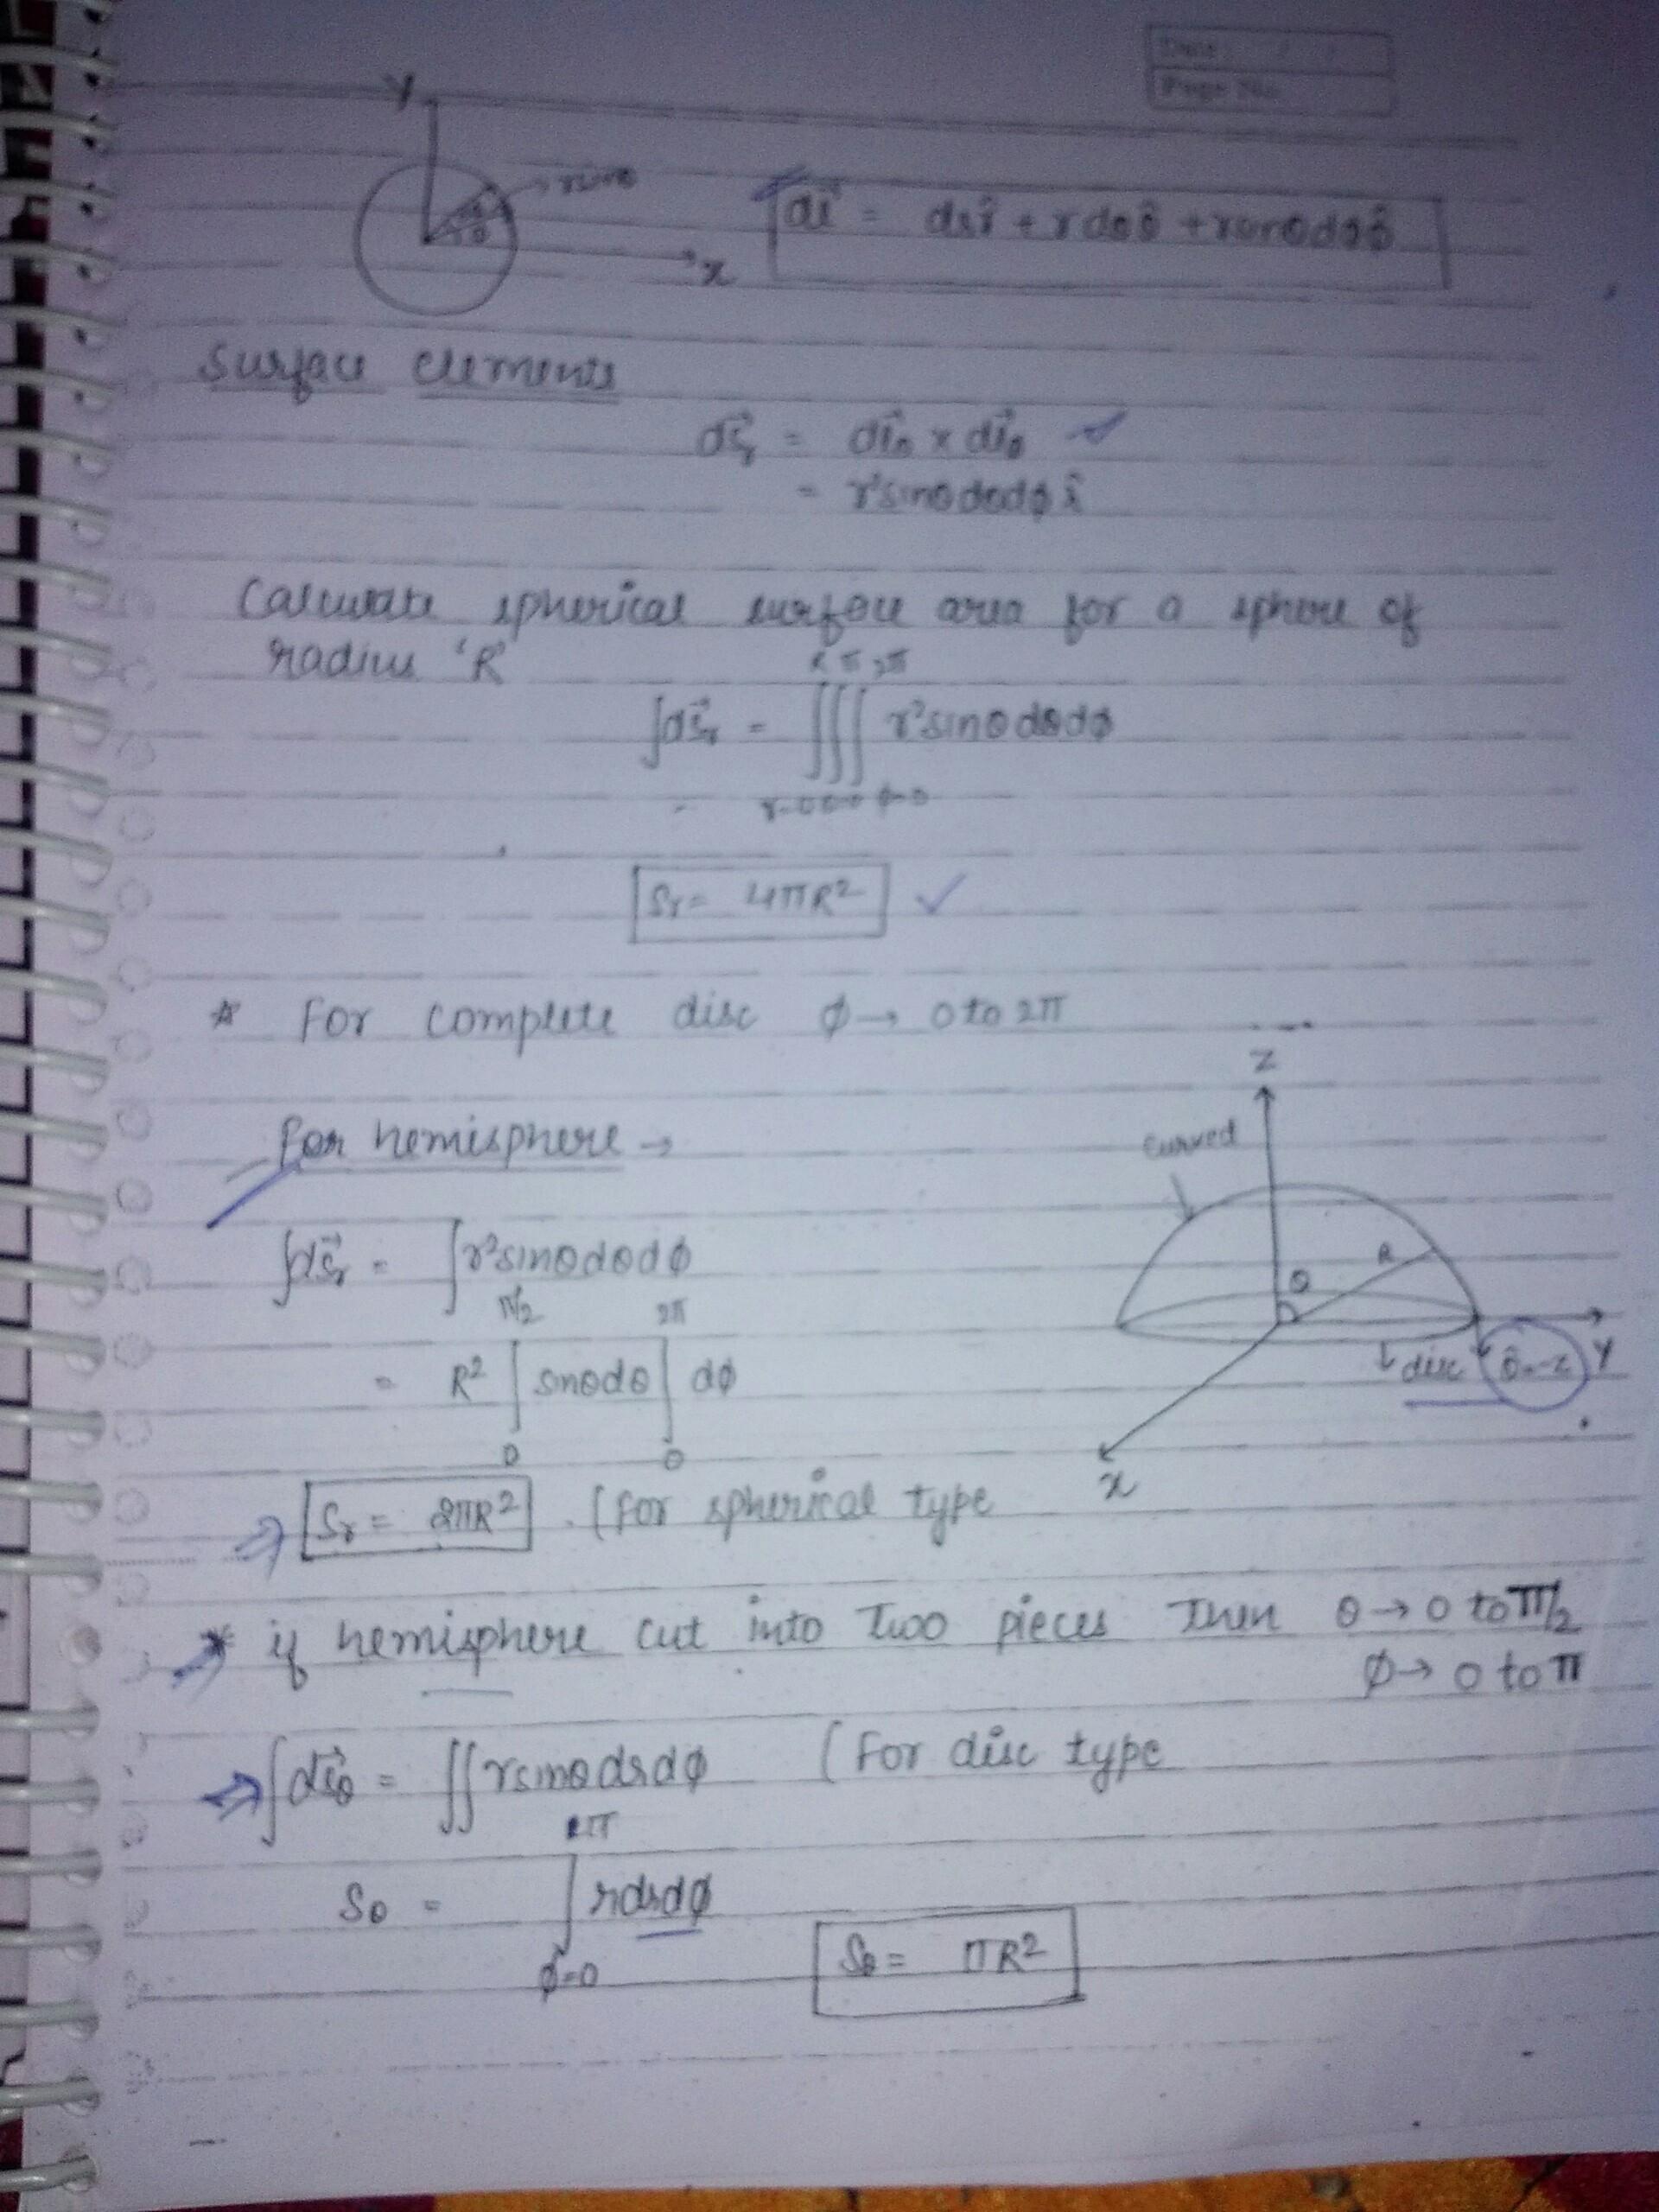 Date: / /
Page No.
Y
rsinθ
x
dl⃗ = dr r̂ + r dθ θ̂ + r sinθ dϕ ϕ̂
Surface elements
ds⃗r = dl⃗θ × dl⃗ϕ
= r²sinθdθdϕ r̂
Calculate spherical surface area for a sphere of
radius 'R'
R π 2π
∫ds⃗r = ∭ r²sinθdθdϕ
= r=0 θ=0 ϕ=0
Sr = 4πR² ✓
* For complete disc ϕ → 0 to 2π
Z
For hemisphere →
curved
∫ds⃗r = ∫r²sinθdθdϕ
R
θ
π/2 2π
= R² ∫ sinθdθ ∫ dϕ
0 0
↓ disc θ̂=-z Y
x
⇒ Sr = 2πR² . (for spherical type
* if hemisphere cut into Two pieces Then θ → 0 to π/2
ϕ → 0 to π
⇒ ∫ds⃗θ = ∬rsinθdrdϕ (For disc type
2π
Sθ = ∫ rdrdϕ
ϕ=0
Sθ = πR²